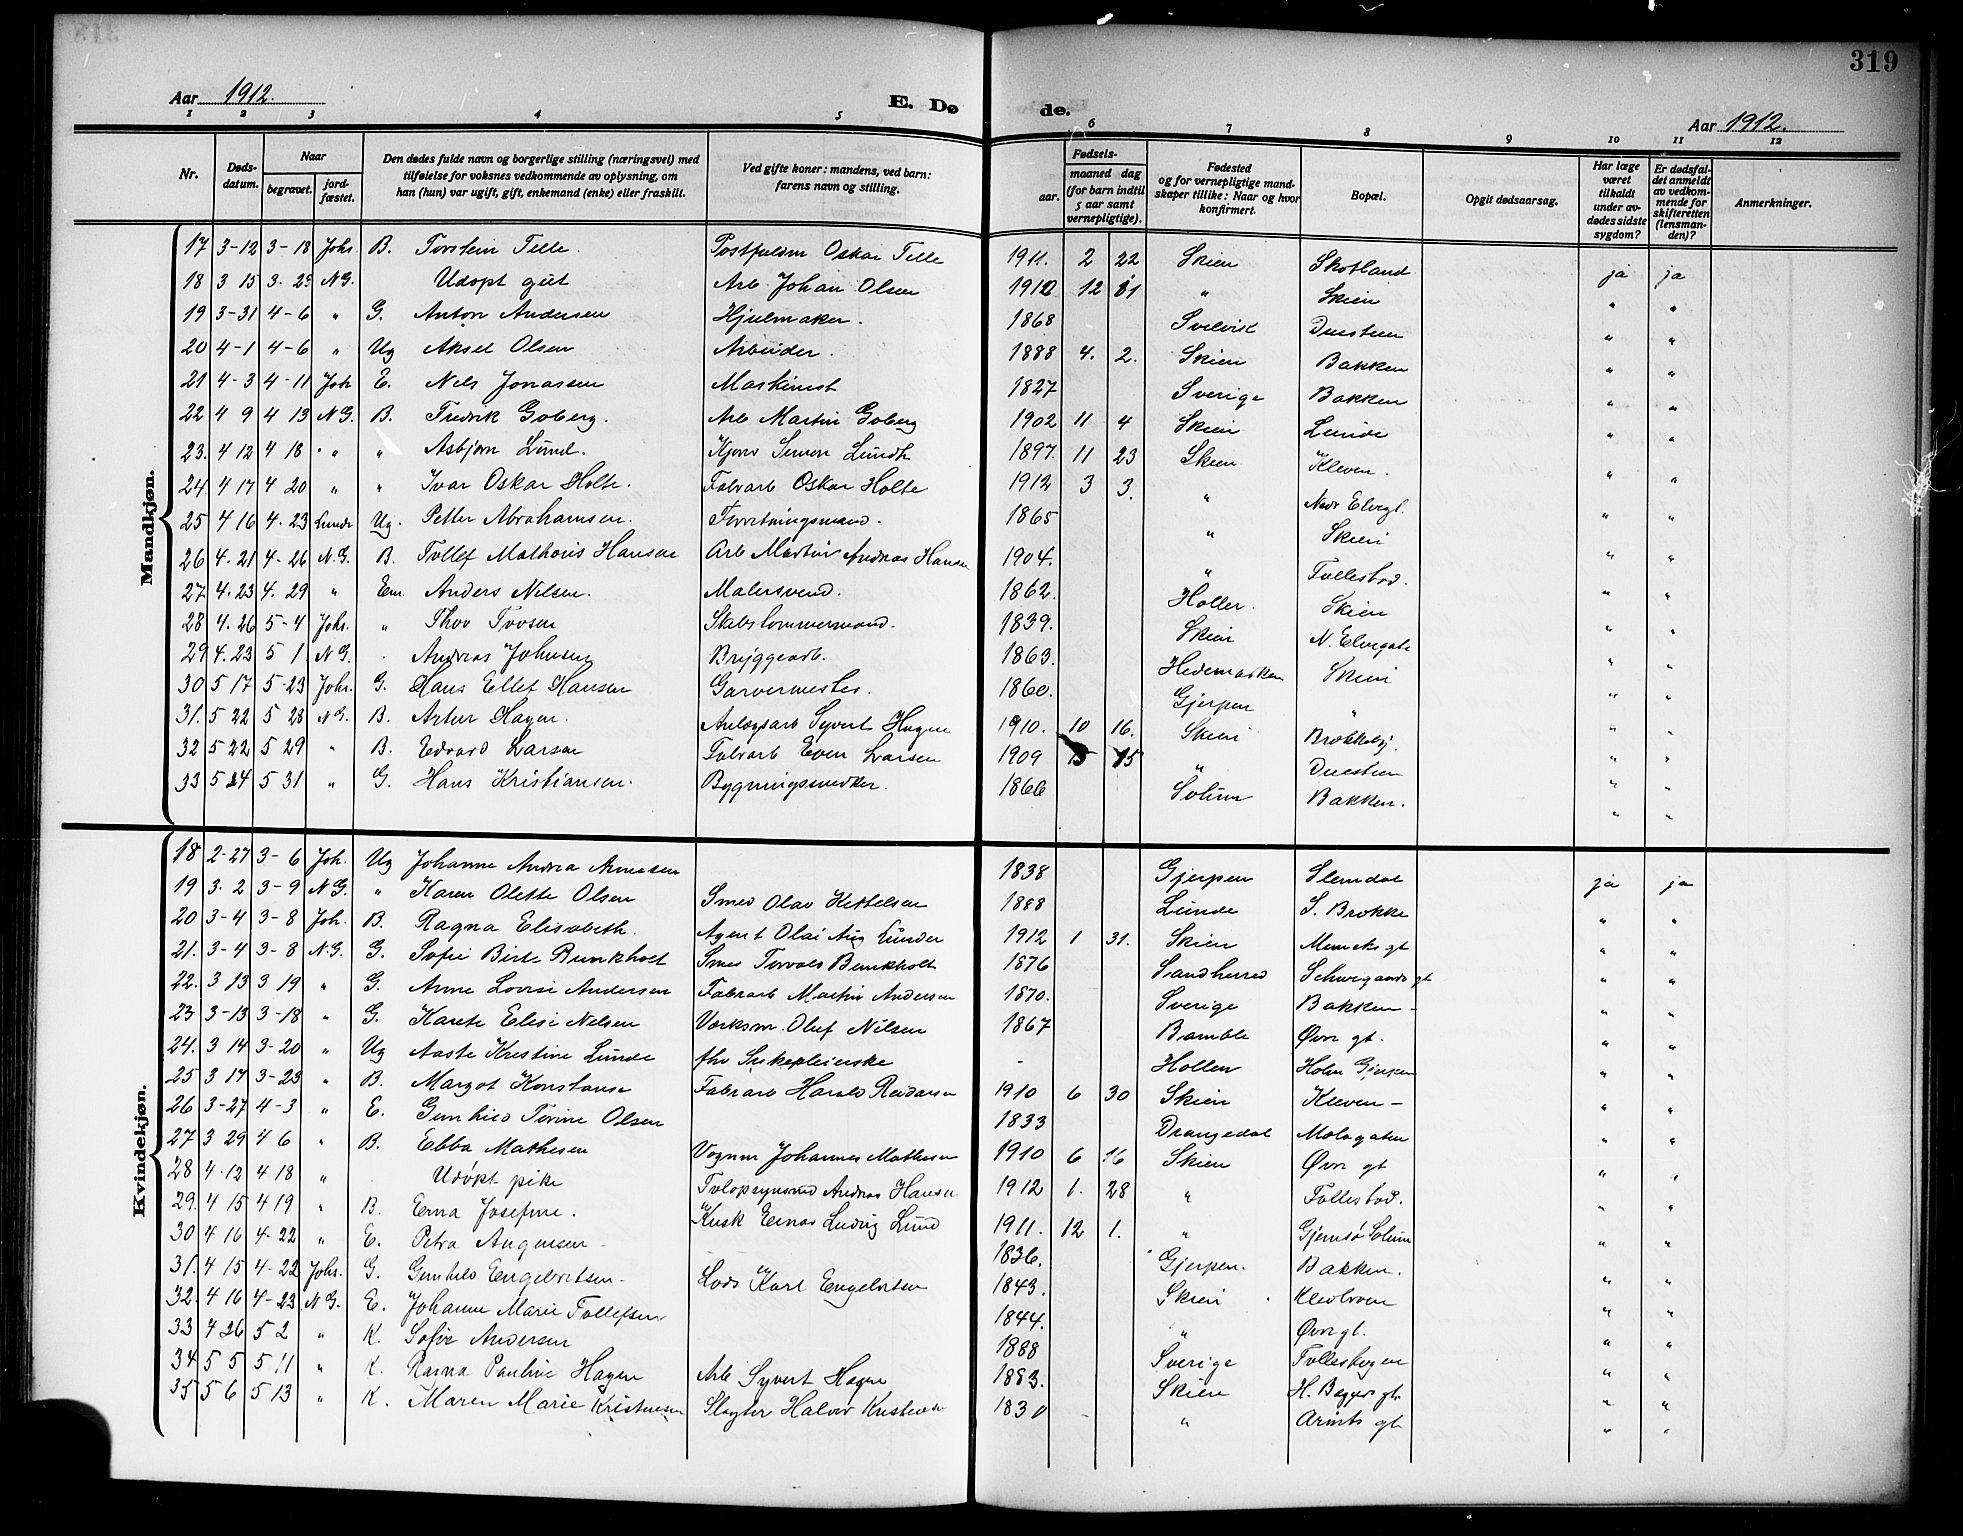 319
Aar 1912.
E. Dø de.
Aar 1912.
1 2 3 4 5 6 7 8 9 10 11 12
Nr.
Døds-
datum.
Naar
begravet.
jord-
fæstet.
Den dødes fulde navn og borgerlige stilling (næringsvei) med
tilføielse for voksnes vedkommende av oplysning, om
han (hun) var ugift, gift, enkemand (enke) eller fraskilt.
Ved gifte koner: mandens, ved barn:
farens navn og stilling.
Fødsels-
aar.
maaned dag
(for barn indtil
5 aar samt
vernepligtige).
Fødested
og for vernepligtige mand-
skaper tillike: Naar og hvor
konfirmert.
Bopæl.
Opgit dødsaarsag.
Har læge
været
tilkaldt
under av-
dødes sidste
sygdom?
Er dødsfal-
det anmeldt
av vedkom-
mende for
skifteretten
(lensman-
den)?
Anmerkninger.
Mandkjøn.
17 3-12 3-18 Johs. B. Torstein Telle. Postfuldm Oskar Telle 1911. 2 22 Skien Skotland ja ja
18 3 15 3. 23 N G. Udøpt gut Arb Johan Olsen 1912 12 " Skien " "
19 3-31 4-6 " G. Anton Andersen Hjulmaker. 1868 Svelvik Duesteen " "
20 4-1 4-6 " Ug Aksel Olsen Arbeider. 1888 4. 2. Skien Bakken " "
21 4-3 4-11 Joh E. Nels Jonassen Maskinist 1827 Sverige Bakken " "
22 4 9 4 13 N G. B. Fredrik Goberg. Arb Martin Goberg 1902 11 4 Skien Lunde " "
23. 4 12 4 18 " " Asbjørn Lund. Simon Lundh 1897. 11 23 Skien Kleven. " "
24 4 17 4 20 " " Ivar Oskar Holte. Fabrarb Oskar Holte 1912 3 3. " Nedr Elvegt. " "
25 4 16 4. 23 Lunde Ug. Petter Abrahamsen. Forretningsmand. 1865 " Skien " "
26 4. 21 4-26 N. G. B. Tollef Mathias Hansen Arb Martin Andreas Hansen 1904. " Follestad. " "
27 4. 23 4. 29 " Em. Anders Nilsen. Malersvend. 1862. Holler. Skien " "
28 4. 26 5-4 Johs. " Thov Tovsen Skibstømmermand. 1839. Skien N. Elvegate " "
29 4. 23 5 1. N G. Andreas Johnsen Bryggearb. 1863. Hedemarken Skien " "
30 5 17 5-23 Johs. G. Hans Ellef Hansen Garvermester. 1860. Gjerpen " " "
31. 5 22 5 28 N G. B. Artur Hagen. Anlægsarb Syvert Hagen 1910. 10 16. Skien " "
32 5 22 5 29 " B. Edvard Larsen Fabrarb Even Larsen 1909 15 " Duesteen " "
33 5 24 5 31 " G. Hans Kristiansen. Bygningssnedker. 1866 Solum Bakken. " "
Kvindekjøn.
18 2-27 3-6 Joh. Ug Johanne Andrea Arnesen 1838 Gjerpen Slemdal ja ja
19 3. 2 3-9 N G. " Karen Olette Olsen Smed Olav Kittelsen 1888 Lunde S. Brekke " "
20 3-4 3-8 Joh. B. Ragna Elisabeth. Agent Olai Aug Lunder 1912 1 31. Skien gt " "
21. 3-4 3-8 N. G. G. Sofie Birte Bunkholt Smed Torvald Bunkholt 1876 Sandherred Schweigaards gt " "
22. 3 13 3 19 " G. Anne Lovise Andersen Fabrarb Martin Andersen 1870. Sverige Bakken - " "
23 3-13 3-18 " G. Karete Elise Nelsen Verksm. Oluf Nilsen 1867 Bamble Øvre gt. " "
24. 3 14 3-20 " Ug Aaste Kristine Lunde fhv Sykepleierske - Hollen Holm Gjerpen " "
25 3 17 3-23 " B. Margot Konstanse Fabrarb Harald Reidarsen 1910 6 30 Skien Kleven - " "
26 3-27 4-3 " E. Gunhild Torine Olsen 1833 Drangedal Mælagaten " "
27 3 29 4 6 " B. Ebba Mathisen Vognm Johannes Mathisen 1910 6 16 Skien Øvre gt " "
28 4-12 4 18 " Udøpt pike Andreas Hansen 1912 1. 28 " Follestad. " "
29. 4 15 4 19 " B. Erna Josefine. Kusk Ludvig Lund 1911. 12 1. " Gjemsø Solum " "
30 4 16 4-22 " E. Petra Augensen - 1836. Gjerpen. Bakken. " "
31. 4 15 4-22 Johs. G. Gunhild Engebretsen - Lods Karl Engebretsen 1843. Skien " "
32. 4 16 4-23 N G. E. Johanne Marie Tollefsen 1844. " Øvre gt. " "
33 4 26 5 2 " K. Sofie Andersen 1888 Sverige " "
34 5 5 5 11 " K. Ragna Pauline Hagen Arb Syvert Hagen 1883. Skien H. gt. " "
35 5 6 5 13 " K. Maren Marie Kristensen Slagter Halvor Kristensen 1830 " gt " "